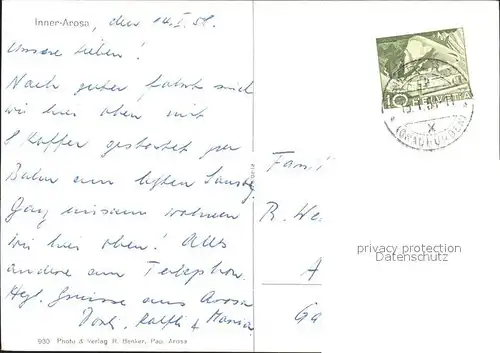 Inner-Arosa, den 14.I.51.
Unsere Lieben!
Nach guter Fahrt sind
wir hier oben mit
8 Koffer gestartet per
Bahn am letzten Samstag
Ganz einsam wohnen
wir hier oben! Alles
andere am Telephon.
Hzl. Grüsse aus Arosa
Ralfli & Maria
930 Photo & Verlag H. Benker, Pau. Arosa
10 HELVETIA
AROSA
(GRAUBÜNDEN)
Fami
R. We
A
Ga
privacy protection
Datenschutz